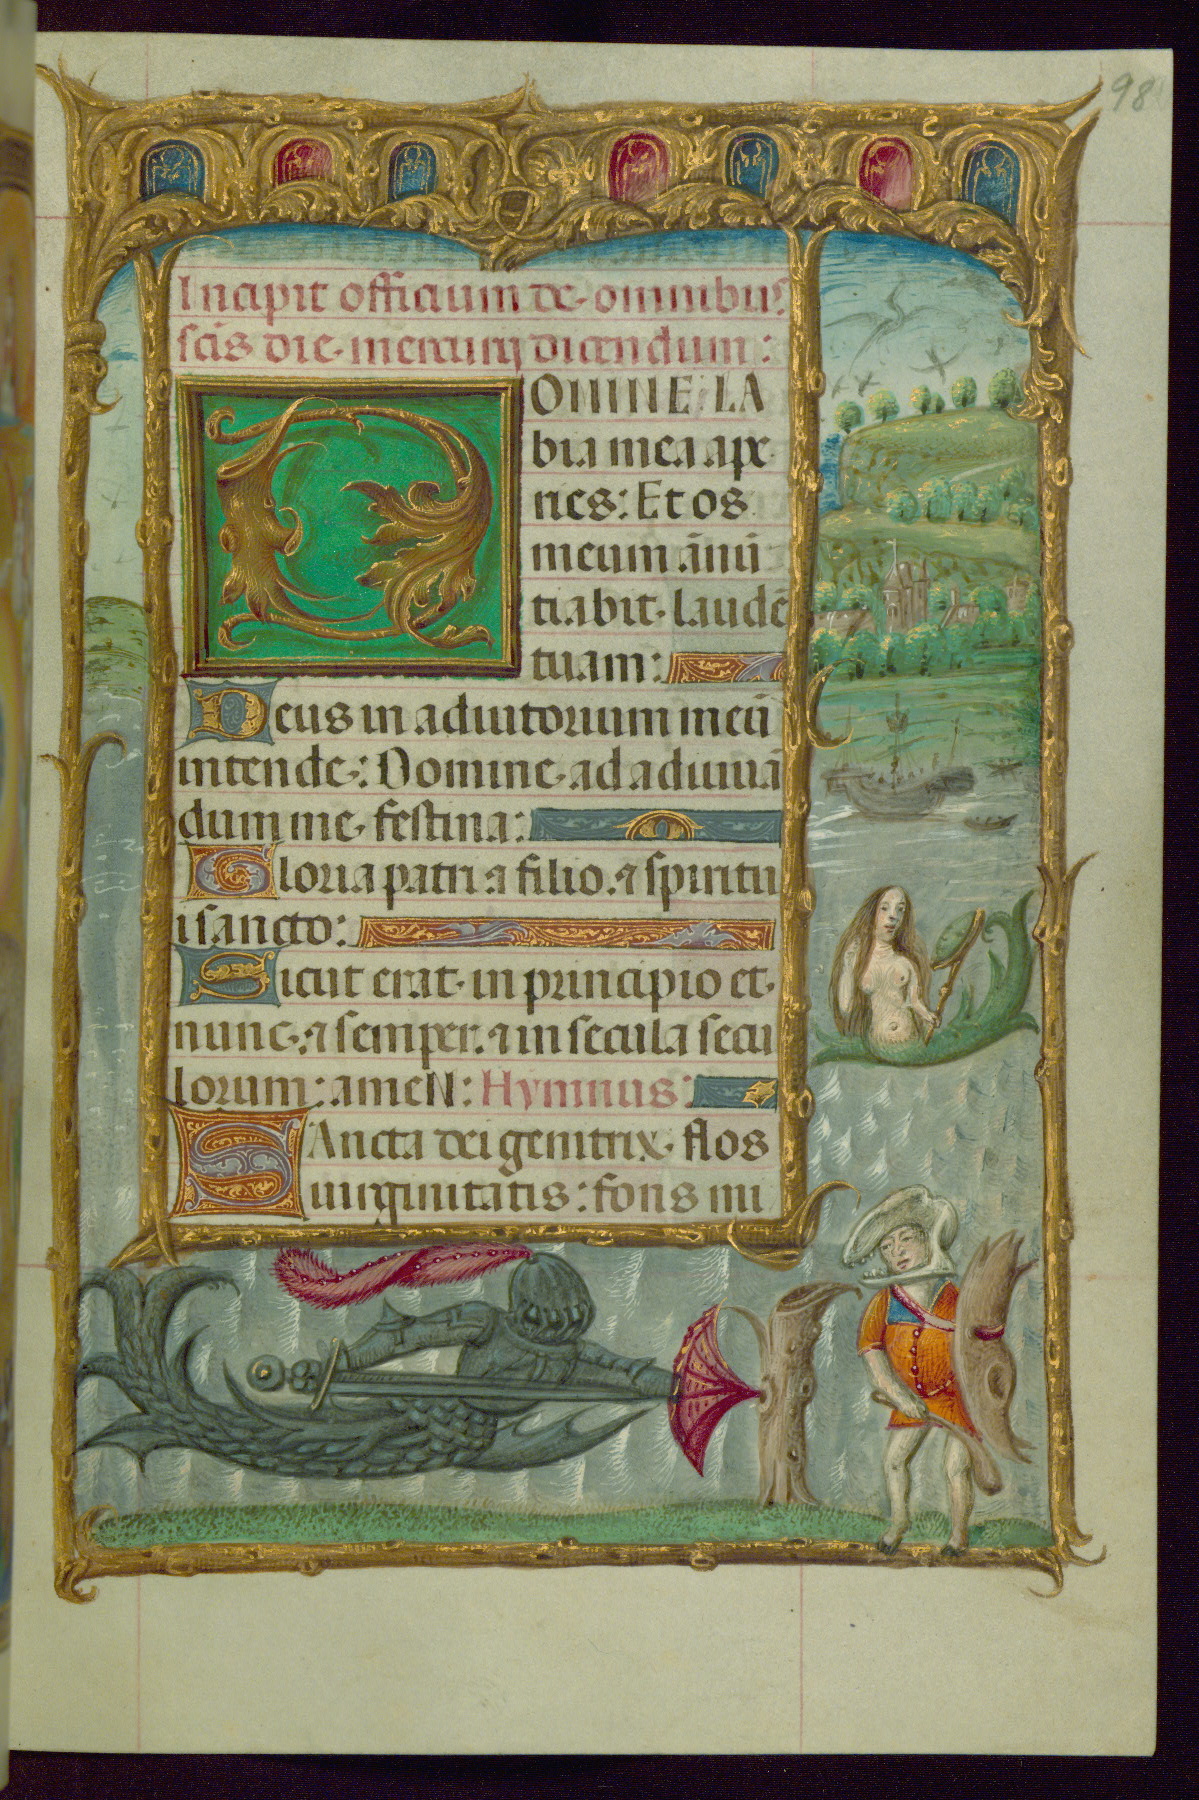 98
Incipit officium de omnibus
scis die mercurij dicendum:
DOMINE LA
bia mea ape
ries: Et os
meum ānū
tiabit laudē
tuam:
Deus in adiutorium meū
intende: Domine ad adiuuā
dum me festina:
Gloria patri ⁊ filio ⁊ spiritu
i sancto:
Sicut erat in principio et
nunc ⁊ semper ⁊ in secula secu
lorum: ameN: Hymnus:
SAncta dei genitrix flos
uirginitatis: fons mi